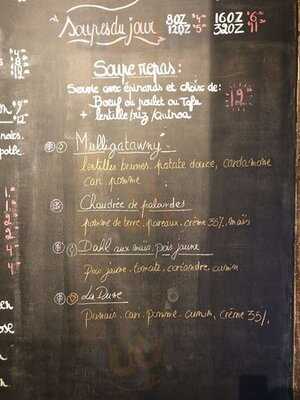 Soupes du jour
8oz "4" 16oz "6"
12oz "5" 32oz "11"
Soupe repas:
Servie avec épinards et choix de:
Boeuf ou poulet ou Tofu
+ lentille/riz/Quinoa
19
Mulligatawny
lentilles brunes. patate douce, cardamome
cari. pomme
Chaudrée de palourdes
pomme de terre. poireaux. crème 35%. maïs
Dahl aux pois jaune
Pois jaune. tomate. coriandre. cumin
Panais. cari. pomme. cumin, crème 35%